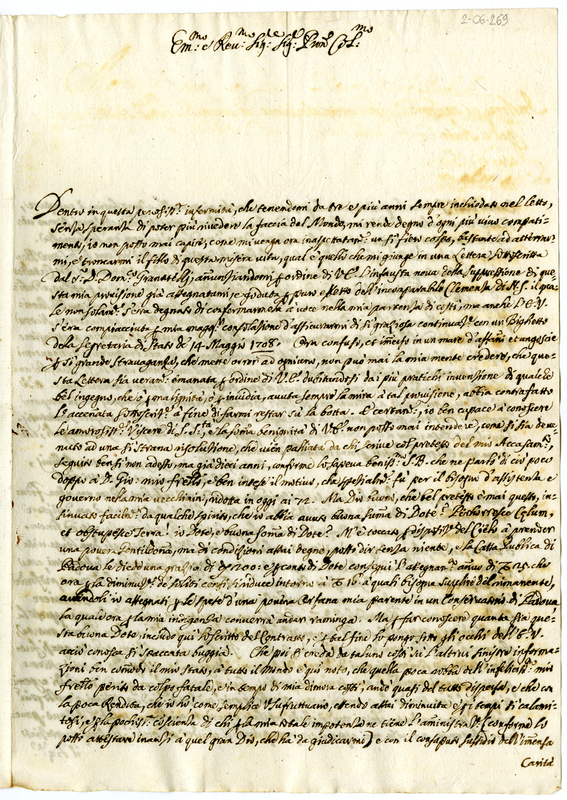 2-06.269
Em:mo e Rev:mo Sig:re Sig:e Pron: Col:mo
Dentro in questa penosiss:a infermità, che tenendomi da tre e più anni sempre inchiodato nel letto,
senza speranza di poter più rivedere la faccia del Mondo, mi rende degno d'ogni più vivo compati-
mento, io non posso mai capire, come mi venga ora inaspettatam:e un sì fiero colpo, bastante ad atterrar-
mi, e troncarmi il filo di questa misera vita, qual è quello che mi giunge in una Lettera sottoscritta
dal S:r D. Dom:co Granatelli, annunziandomi d'ordine di V.E. l'infausta nova della suppressione di que-
sta mia provisione già assegnatami, e goduta per puro effetto dell'incomparabile Clemenza di N.S. il qua-
le non solam:e s'era degnato di confermarmela a voce nella mia partenza di costì, ma anche l'E.V.
s'era compiaciuta per mia magg:r consolazione d'assicurarmi di sì graziosa continuaz:e con un Biglietto
della Segretaria di Stato de' 14. Maggio 1708. Ora confuso, et immerso in un mare d'affanni et angoscie
per sì grande stravaganza, che mette orror ad ogniuno, non può mai la mia mente credere, che que-
sta Lettera sia veram:e emanata per ordine di V.E. dubitandosi dai più pratichi invenzione di qualche
bel ingegno, che per malignità o invidia, avuta sempre la mira a tal provisione, abbia contrafatto
l'accennata sottoscriz:e a fine di farmi restar sù la botta. E certam:e, io ben capace a conoscere
le amorosiss:e Viscere di S.S.tà, e la somma benignità di V.E. non posso mai intendere, come si sia de-
venuto ad una sì strana risoluzione, che vien palliata da chi scrive col pretesto del mio Accasam:to,
seguito bensì non adesso, ma già dieci anni, conforme lo sapeva beniss:o S.B. che ne parlò di ciò poco
doppo a D. Gio: mio frello, e ben intese il motivo, che spezialm:e fu per il bisogno d'assistenza e
governo nella mia vecchiaia, ridotta in oggi ai 72. Ma Dio buono, che bel pretesto è mai questo, in-
sinuato facilm:e da qualche spirito, che io abbia avuto buona summa di Dote? Inhorresce Celum,
et obstupesce Terra! io Dote, e buona soma di Dote? M'è toccato per disposiz:e del Cielo a prender
una povera Gentildona, ma di condizioni assai degne, posso dir senza niente, e la Cassa Publica di
Padova le diede una grazia di d:ti 200: e per conto di Dote conseguì l'assegnam:o annuo di d:ti 25. che
ora per la diminuz:e de' soliti censi si riduce intorno ai d:ti 16. a quali bisogna supplire del rimanente,
avendoli io assegnati per le spese d'una povera orfana mia parente in un Conservatorio di Padova
la qual ora per la mia indigenza converrà andar raminga. Ma per far conoscere quanta sia que-
sta buona Dote, includo qui lo scritto del Contratto, e a tal fine lo pongo sotto gli occhi dell'E.V.
acciò conosca sì staccata buggia. Che poi si creda da taluno costì per l'altrui sinistre informa-
zioni ben comodi il mio stato, a tutto il mondo è qui noto, che quella poca robba dell'infeliciss:o mio
frello perito da colpo fatale, e in tempo di mia dimora costì, andò quasi del tutto dispersa, e che con
la poca Rendita, che io hò come semplice usufruttuario, essendo assai diminuita per i tempi di calami-
tosi, e per la pochiss:a coscienza di chi per la mia totale impotenza ne tiene l'aministraz:e (conforme lo
posso attestare inanzi à quel gran Dio, che hà da giudicarmi) e con il consaputo sussidio dell'immensa
Carità